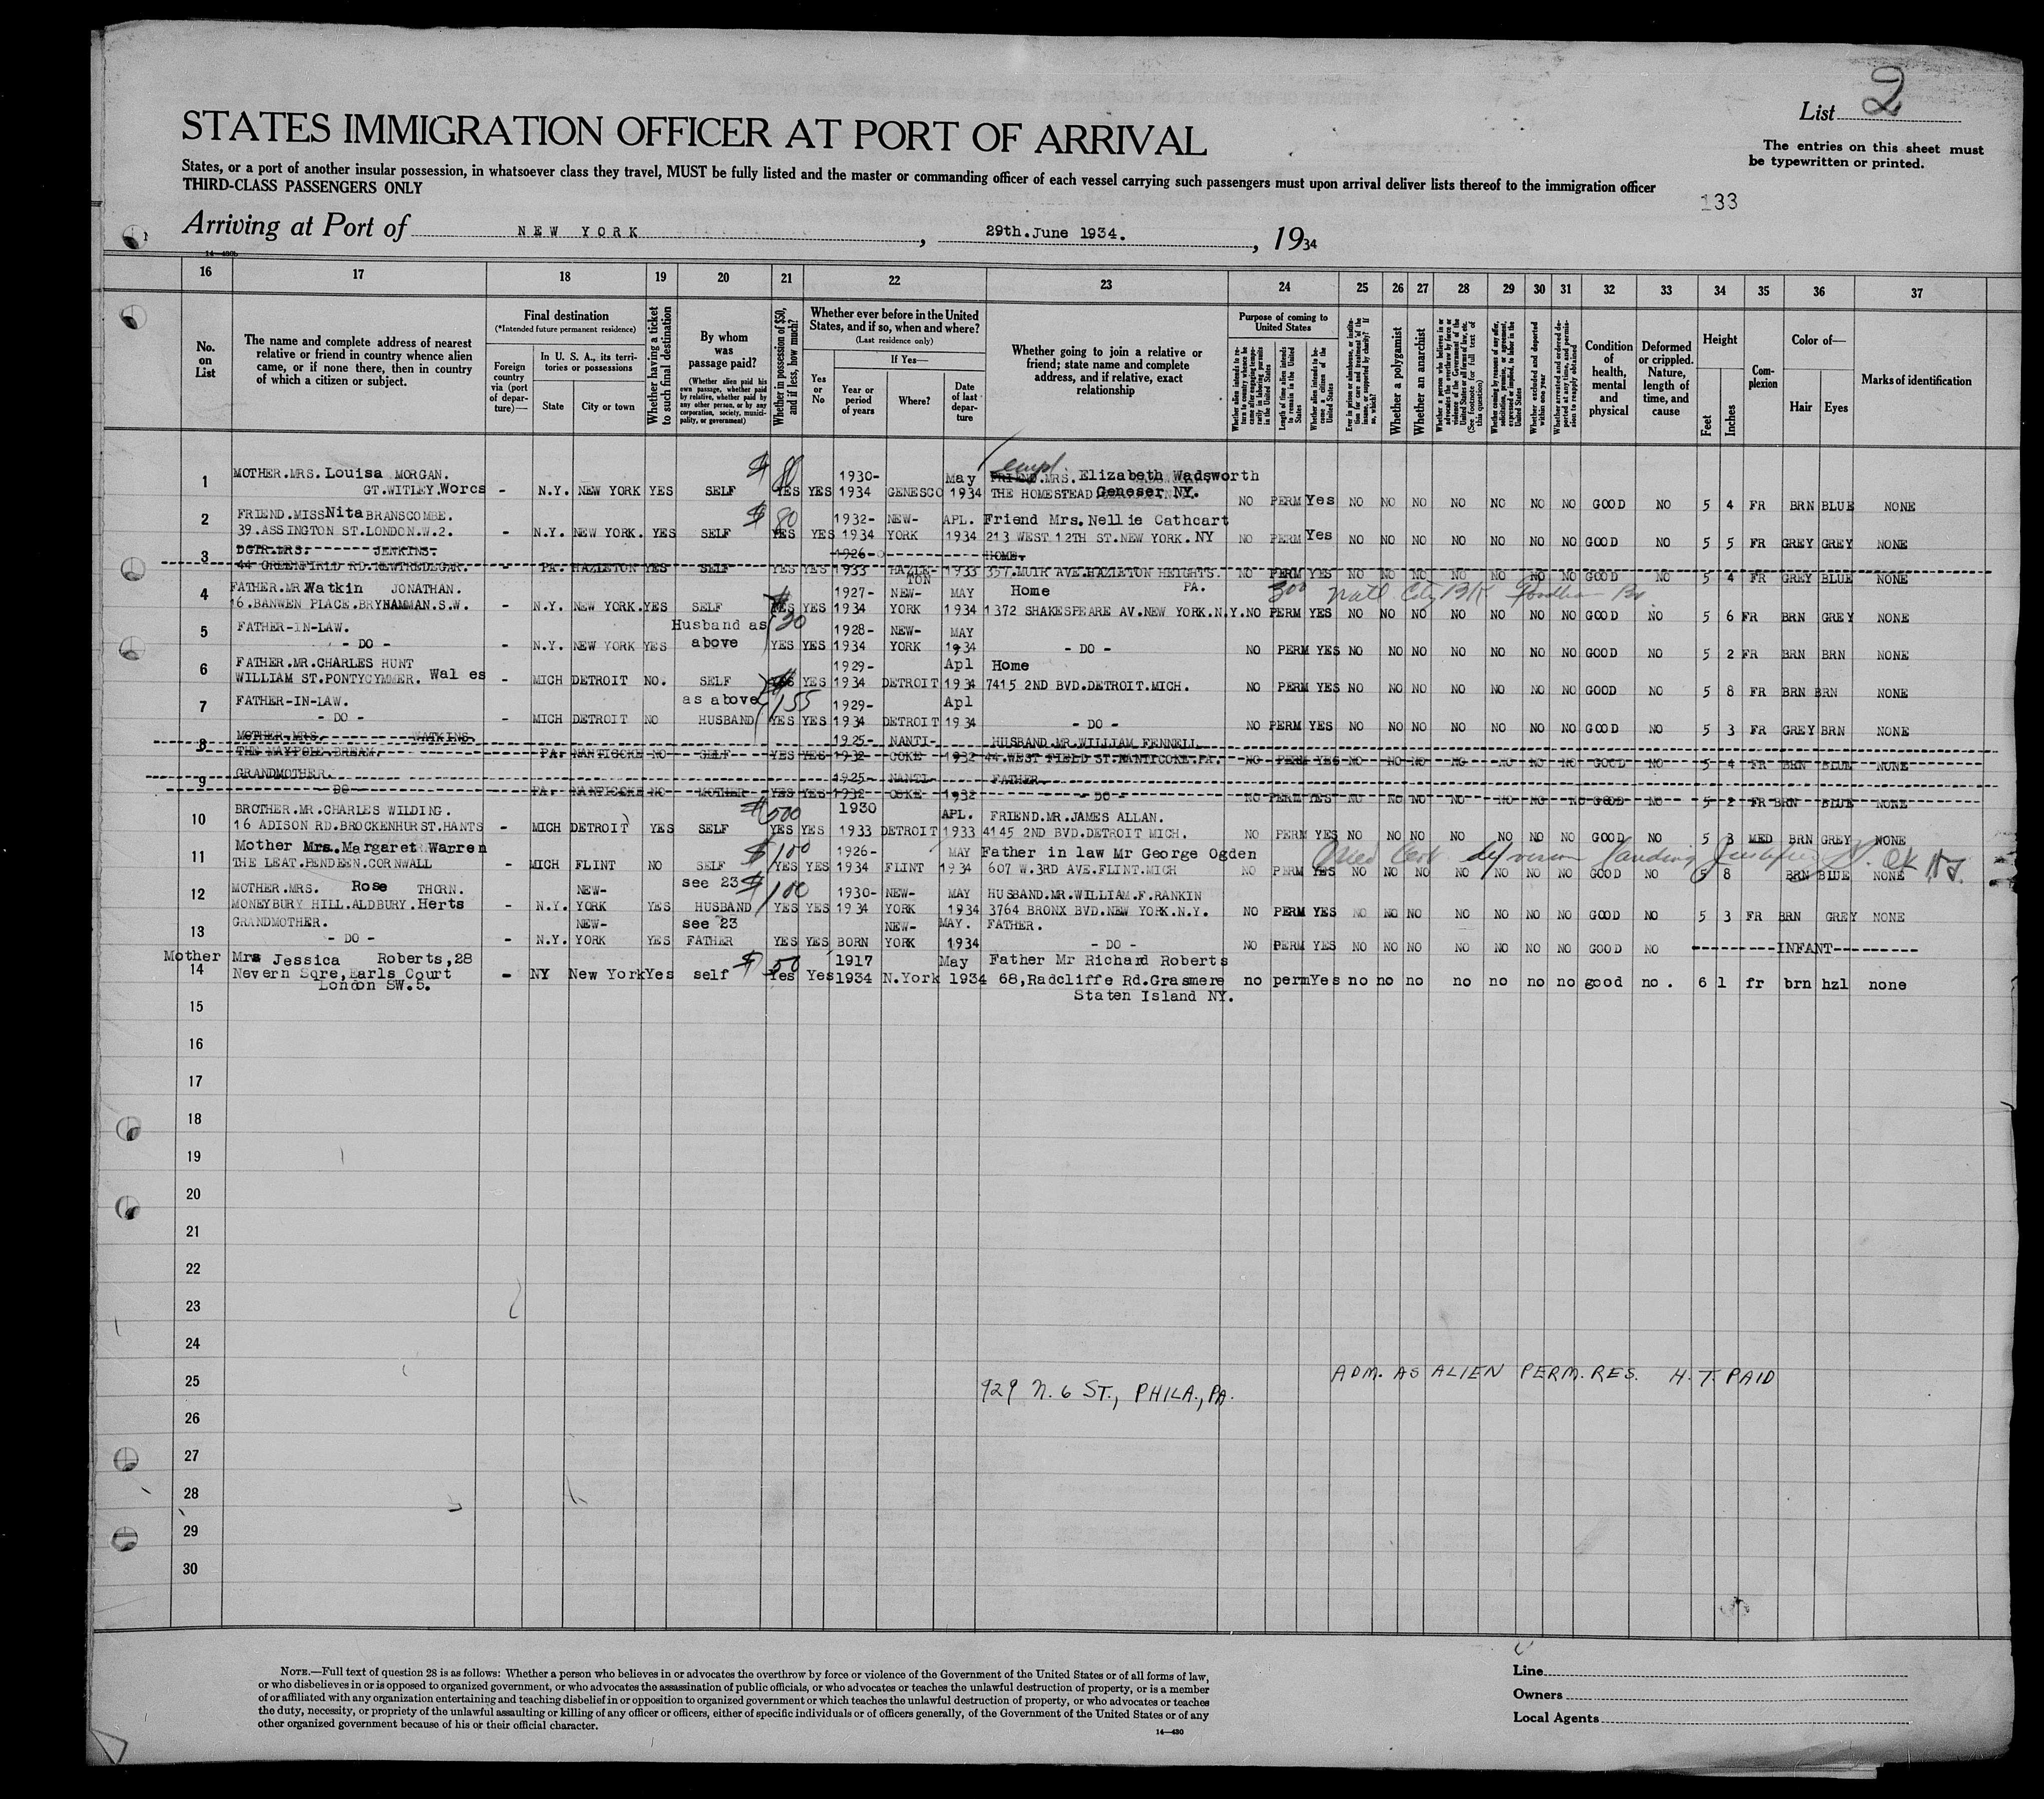 List 2
STATES IMMIGRATION OFFICER AT PORT OF ARRIVAL
The entries on this sheet must be typewritten or printed.
States, or a port of another insular possession, in whatsoever class they travel, MUST be fully listed and the master or commanding officer of each vessel carrying such passengers must upon arrival deliver lists thereof to the immigration officer
THIRD-CLASS PASSENGERS ONLY
133
Arriving at Port of NEW YORK, 29th.June 1934., 1934
14—430b
16 17 18 19 20 21 22 23 24 25 26 27 28 29 30 31 32 33 34 35 36 37
No. on List
The name and complete address of nearest relative or friend in country whence alien came, or if none there, then in country of which a citizen or subject.
Final destination
(*Intended future permanent residence)
Foreign country via (port of departure)—
In U. S. A., its territories or possessions
State
City or town
Whether having a ticket to such final destination
By whom was passage paid?
(Whether alien paid his own passage, whether paid by relative, whether paid by any other person, or by any corporation, society, municipality, or government)
Whether in possession of $50, and if less, how much?
Whether ever before in the United States, and if so, when and where?
(Last residence only)
Yes or No
If Yes—
Year or period of years
Where?
Date of last departure
Whether going to join a relative or friend; state name and complete address, and if relative, exact relationship
Purpose of coming to United States
Whether alien intends to return to country whence he came after engaging temporarily in laboring pursuits in the United States
Length of time alien intends to remain in the United States
Whether alien intends to become a citizen of the United States
Ever in prison or almshouse, or institution for care and treatment of the insane, or supported by charity? If so, which?
Whether a polygamist
Whether an anarchist
Whether a person who believes in or advocates the overthrow by force or violence of the Government of the United States or all forms of law, etc. (See footnote for full text of this question)
Whether coming by reason of any offer, solicitation, promise, or agreement, expressed or implied, to labor in the United States
Whether excluded and deported within one year
Whether arrested and ordered deported at any time, and permission to reapply obtained
Condition of health, mental and physical
Deformed or crippled. Nature, length of time, and cause
Height
Feet
Inches
Complexion
Color of—
Hair
Eyes
Marks of identification
1 MOTHER.MRS. Louisa MORGAN. $ 80 1930- May empl FRIEND.MRS. Elizabeth Wadsworth
GT.WITLEY.Worcs - N.Y. NEW YORK YES SELF YES YES 1934 GENESCO 1934 THE HOMESTEAD Geneser NY. NO PERM Yes NO NO NO NO NO NO NO GOOD NO 5 4 FR BRN BLUE NONE
2 FRIEND.MISS Nita BRANSCOMBE. $ 80 1932- NEW- APL. Friend Mrs.Nellie Cathcart
39.ASSINGTON ST.LONDON.W.2. - N.Y. NEW YORK. YES SELF YES YES 1934 YORK 1934 213 WEST 12TH ST.NEW YORK. NY NO PERM Yes NO NO NO NO NO NO NO GOOD NO 5 5 FR GREY GREY NONE
3 DGTR.MRS. JENKINS. 1926- HOME.
44 GREENFIELD RD.NEWTREDEGAR. - PA. HAZLETON YES SELF YES YES 1933 HAZLETON 1933 357.MUIR AVE.HAZLETON HEIGHTS. PA. NO PERM YES NO NO NO NO NO NO NO GOOD NO 5 4 FR GREY BLUE NONE
4 FATHER.MR.Watkin JONATHAN. 1927- NEW- MAY Home 300 Natl City BK
16.BANWEN PLACE.BRYHAMMAN.S.W. - N.Y. NEW YORK.YES SELF YES YES 1934 YORK 1934 1372 SHAKESPEARE AV.NEW YORK.N.Y. NO PERM YES NO NO NO NO NO NO NO GOOD NO 5 6 FR BRN GREY NONE
5 FATHER-IN-LAW. Husband as 30 1928- NEW- MAY
- DO - - N.Y. NEW YORK YES above YES YES 1934 YORK 1934 - DO - NO PERM YES NO NO NO NO NO NO NO GOOD NO 5 2 FR BRN BRN NONE
6 FATHER.MR.CHARLES HUNT 1929- Apl Home
WILLIAM ST.PONTYCYMMER. Wales - MICH DETROIT NO. SELF YES YES 1934 DETROIT 1934 7415 2ND BVD.DETROIT.MICH. NO PERM YES NO NO NO NO NO NO NO GOOD NO 5 8 FR BRN BRN NONE
7 FATHER-IN-LAW. as above $155 1929- Apl
- DO - - MICH DETROIT NO HUSBAND YES YES 1934 DETROIT 1934 - DO - NO PERM YES NO NO NO NO NO NO NO GOOD NO 5 3 FR GREY BRN NONE
8 MOTHER.MRS. WATKINS. 1925- NANTI- HUSBAND.MR.WILLIAM FENNELL
THE MAYPOLE.BREAM. PA. NANTICOKE NO SELF YES YES 1932 COKE 1932 44.WEST FIELD ST.NANTICOKE.PA. NO PERM YES NO NO NO NO NO NO NO GOOD NO 5 4 FR BRN BLUE NONE
9 GRANDMOTHER. 1925- NANTI- FATHER
- DO - PA. NANTICOKE NO MOTHER YES YES 1932 COKE 1932 - DO - NO PERM YES NO NO NO NO NO NO NO GOOD NO 5 2 FR BRN BLUE NONE
10 BROTHER.MR.CHARLES WILDING. $500 1930 APL. FRIEND.MR.JAMES ALLAN.
16 ADISON RD.BROCKENHURST.HANTS - MICH DETROIT YES SELF YES YES 1933 DETROIT 1933 4145 2ND BVD.DETROIT MICH. NO PERM YES NO NO NO NO NO NO NO GOOD NO 5 3 MED BRN GREY NONE
11 Mother Mrs.Margaret Warren $100 1926- MAY Father in law Mr George Ogden
THE LEAT.PENDEEN.CORNWALL - MICH FLINT NO SELF YES YES 1934 FLINT 1934 607 W.3RD AVE.FLINT.MICH NO PERM YES NO NO NO NO NO NO NO GOOD NO 5 8 BRN BLUE NONE
12 MOTHER.MRS. Rose THORN. NEW- see 23 $100 1930- NEW- MAY HUSBAND.MR.WILLIAM.F.RANKIN
MONEYBURY HILL.ALDBURY.Herts - N.Y. YORK YES HUSBAND YES YES 1934 YORK 1934 3764 BRONX BVD.NEW YORK.N.Y. NO PERM YES NO NO NO NO NO NO NO GOOD NO 5 3 FR BRN GREY NONE
13 GRANDMOTHER. NEW- see 23 NEW- MAY. FATHER.
- DO - - N.Y. YORK YES FATHER YES YES BORN YORK 1934 - DO - NO PERM YES NO NO NO NO NO NO NO GOOD NO -INFANT-
14 Mother Mrs Jessica Roberts,28 $50 1917 May Father Mr Richard Roberts
Nevern Sqre,Earls Court - NY New York Yes self Yes Yes 1934 N.York 1934 68,Radcliffe Rd.Grasmere no perm Yes no no no no no no no good no. 6 1 fr brn hzl none
London SW.5. Staten Island NY.
15
16
17
18
19
20
21
22
23
24
25 929 N. 6 ST., PHILA., PA. ADM. AS ALIEN PERM. RES. H.T. PAID
26
27
28
29
30
NOTE.—Full text of question 28 is as follows: Whether a person who believes in or advocates the overthrow by force or violence of the Government of the United States or of all forms of law,
or who disbelieves in or is opposed to organized government, or who advocates the assassination of public officials, or who advocates or teaches the unlawful destruction of property, or is a member
of or affiliated with any organization entertaining and teaching disbelief in or opposition to organized government or which teaches the unlawful destruction of property, or who advocates or teaches
the duty, necessity, or propriety of the unlawful assaulting or killing of any officer or officers, either of specific individuals or of officers generally, of the Government of the United States or of any
other organized government because of his or their official character.
14—430
Line
Owners
Local Agents